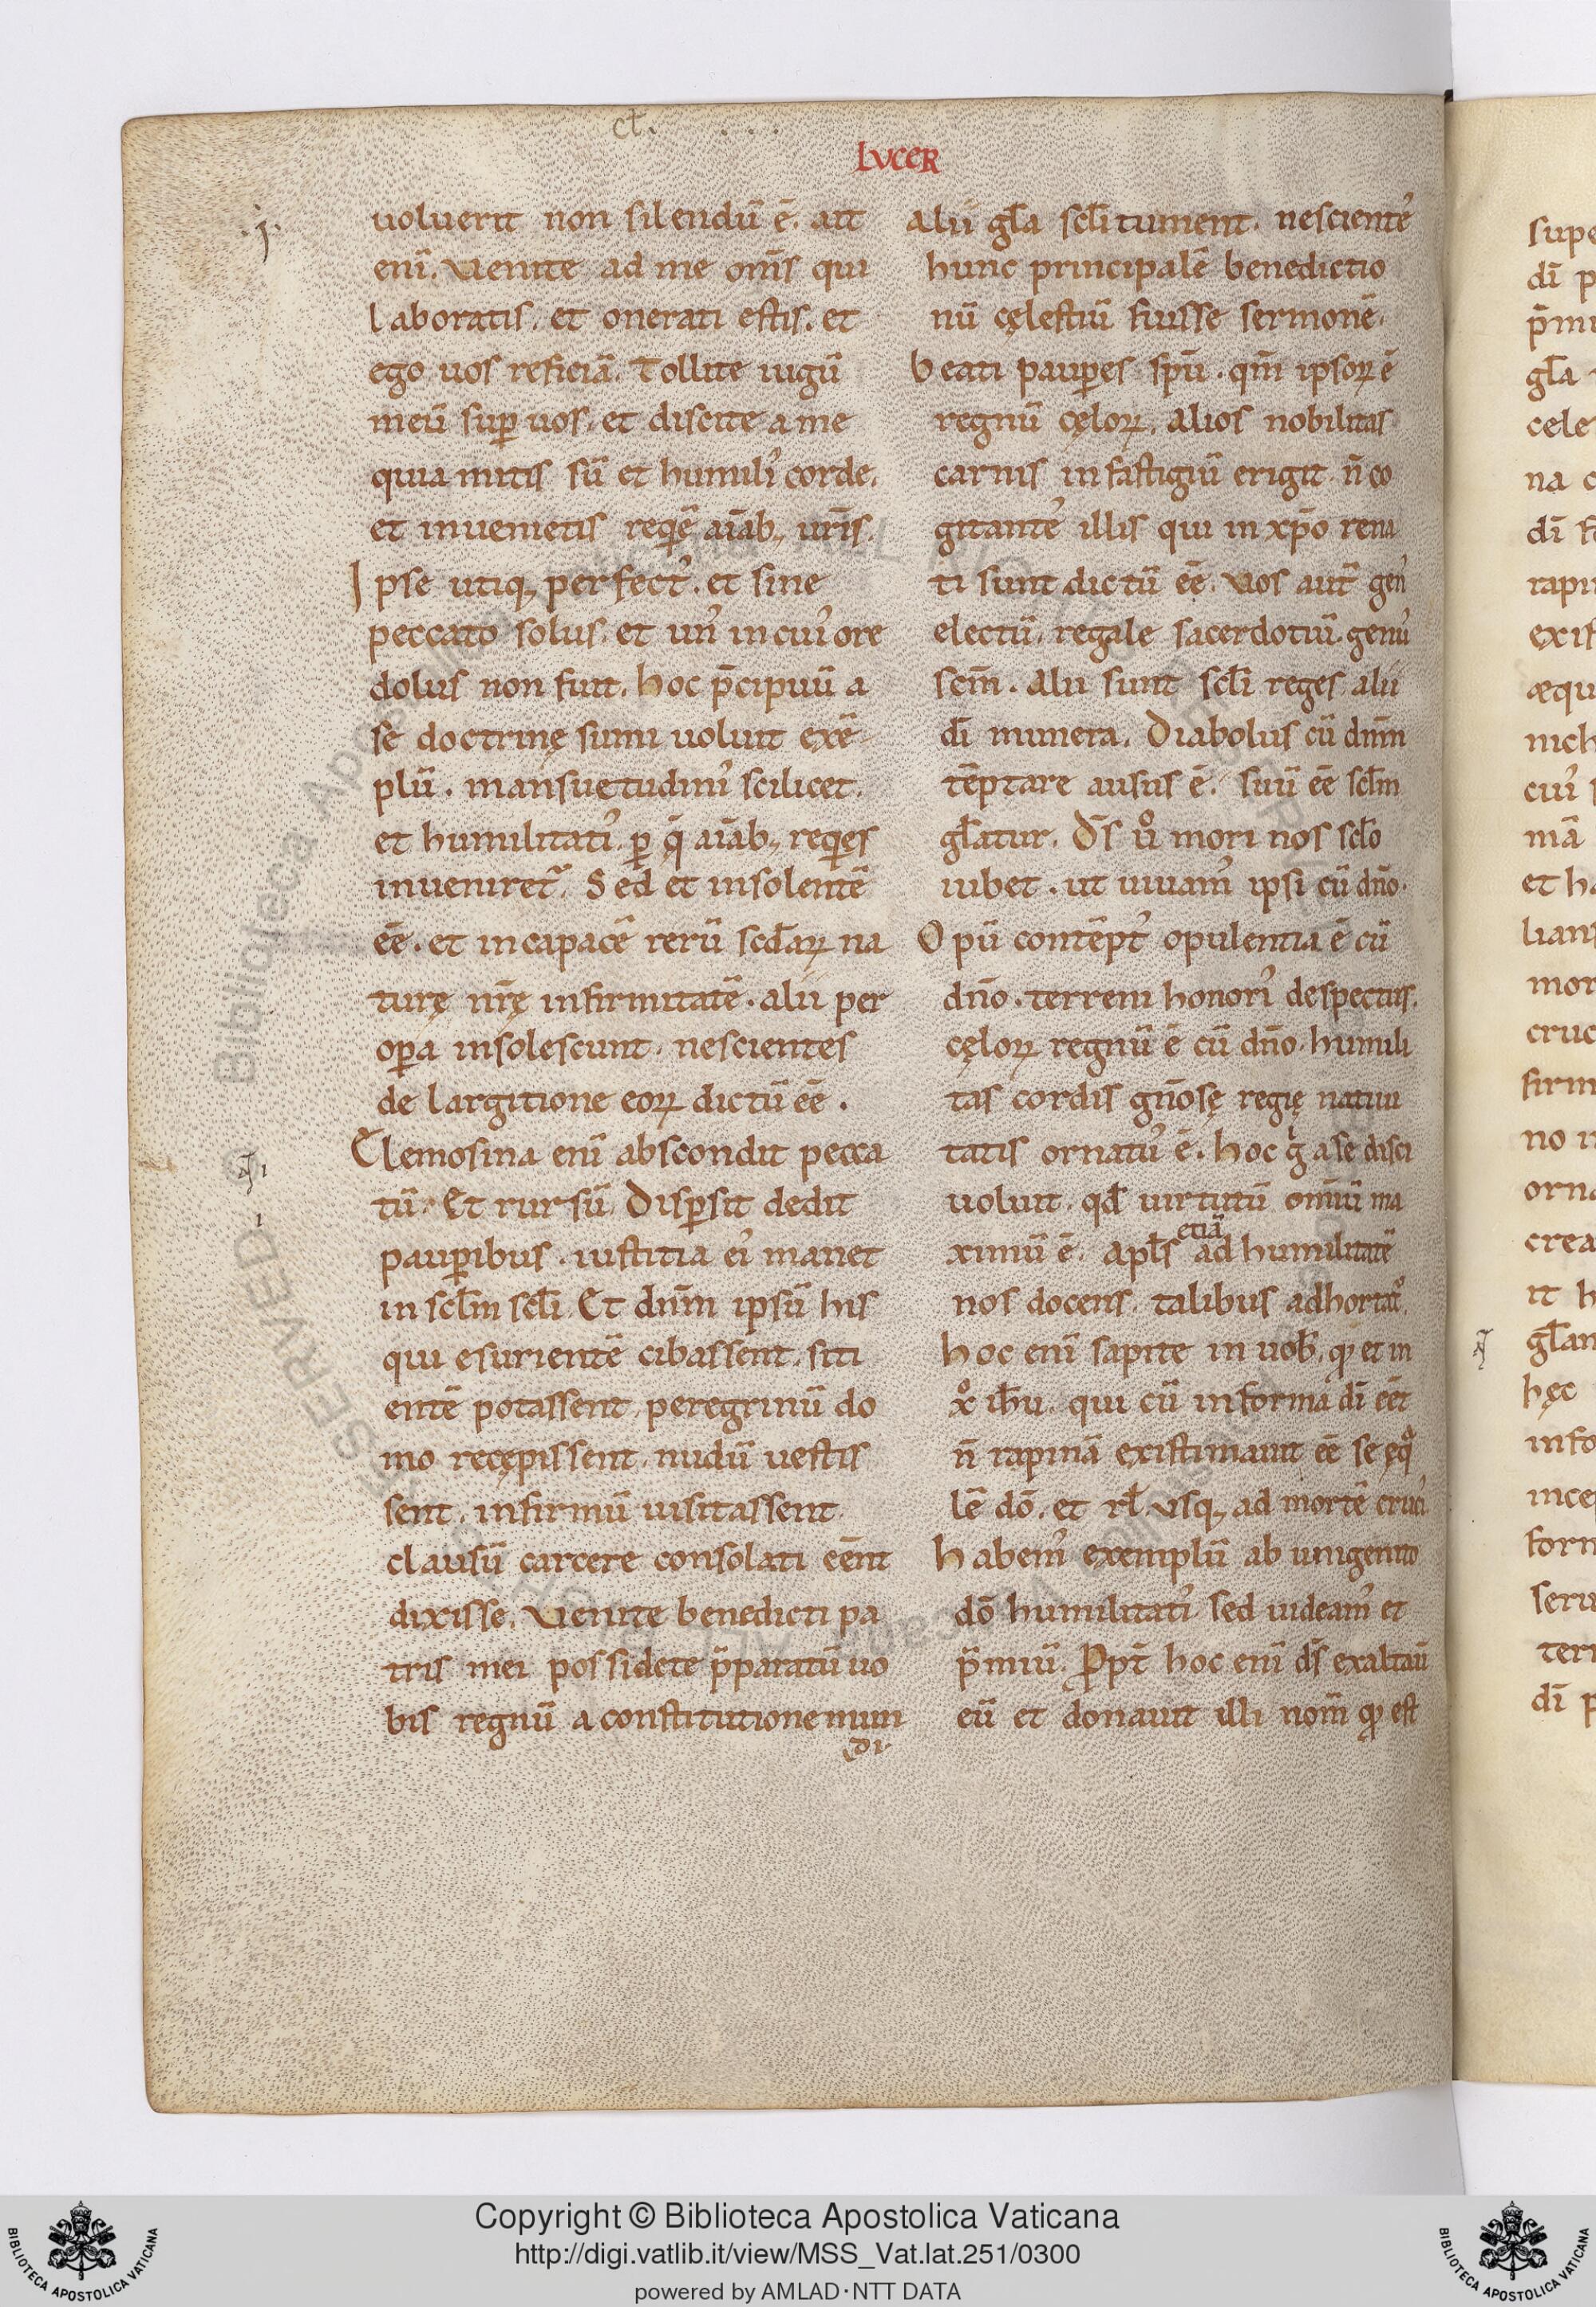 cł.
LVCER
uoluerit non silendū ē. ait
enī. Venite ad me om̄s qui
laboratis. et onerati estis. et
ego uos reficiā. Tollite iugū
meū sup̱ uos. et discite a me
quia mitis sū et humilꝰ corde.
et inuenietis req̇ē aīab; ur̄is.
Ipse utiq; perfectꝰ. et sine
peccato solus. et unꝰ in cuiꝰ ore
dolus non fuit. hoc p̄cipuū a
se doctrinę sumi uoluit exē
plū. mansuetudinꝰ scilicet.
et humilitatꝰ. ꝑ q̄ aīab; req̇es
inueniret᷑. Sed et insolentē
eē. et incapacē rerū sc̄darꝝ na
turę nr̄ę infirmitatē. alii per
oꝑa insolescunt. nescientes
de largitione eoꝝ dictū eē.
Elemosina enī abscondit pecca
tū. Et rursū. Disꝑsit dedit
pauꝑibus. iustitia eiꝰ manet
in scłm scłi. Et dn̄m ipsū his
qui esurientē cibassent. siti
entē potassent. peregrinū do
mo recępissent. nudū uestis
sent. infirmū uisitassent.
clausū carcere consolati eēnt
dixisse. Venite benedicti pa
tris mei possidete p̄paratū uo
bis regnū a constitutione mun
di.
Alii gła scłi tument. nescientꝰ
hunc principalē benedictio
nū cęlestiū fuisse sermonē.
Beati pauꝑes sp̄u. qm̄ ipsoꝝ ē
regnū cęloꝝ. Alios nobilitas
carnis in fastigiū erigit. n̄ co
gitantꝰ illis qui in xp̄o rena
ti sunt dictū eē. Vos aut̄ genꝰ
electū. regale sacerdotiū. genꝰ
scm̄. Alii sunt scłi reges alii
dī munera. Diabolus cū dnm̄
tēptare ausus ē. suū eē scłm
głatur. D̄s uͦ mori nos scło
iubet. ut uiuamꝰ ipsi cū dn̄o.
Opū contēptꝰ opulentia ē cū
dn̄o. terreni honorꝰ despectus.
cęloꝝ regnū ē cū dn̄o. humili
tas cordis gn̄osę regię natiui
tatis ornatꝰ ē. hoc g̊ a se disci
uoluit. qđ uirtutū omīū ma
ximū ē. apłs etiā ad humilitatē
nos docens. talibus adhortat᷑.
Hoc enī sapite in uob̄. qͩ et in
xͦ ih̄u. qui cū in forma dī eēt
n̄ rapinā existimauit eē se ęq̊
lē dō. et rł. Vsq; ad mortē crucꝰ.
Habemꝰ exemplū ab unigenito
dō humilitatꝰ. sed uideamꝰ et
p̄miū. Ꝓpt̄ hoc enī d̄s exaltau̅
eū et donauit illi nom̄ qͩ est
supe
dī p
p̄mi
gła
cele
na c
dī f
rapi
exis
æqu
nich
cuiꝰ s
mā
et ha
lians
mor
cruc
firm
no i
orna
crea
it h
głan
hęc
info
ince
forn
seru
terr
dī p
© Biblioteca Apostolica Vaticana ALL RIGHTS RESERVED
Copyright © Biblioteca Apostolica Vaticana
http://digi.vatlib.it/view/MSS_Vat.lat.251/0300
powered by AMLAD·NTT DATA
BIBLIOTECA APOSTOLICA VATICANA
BIBLIOTECA APOSTOLICA VATICANA